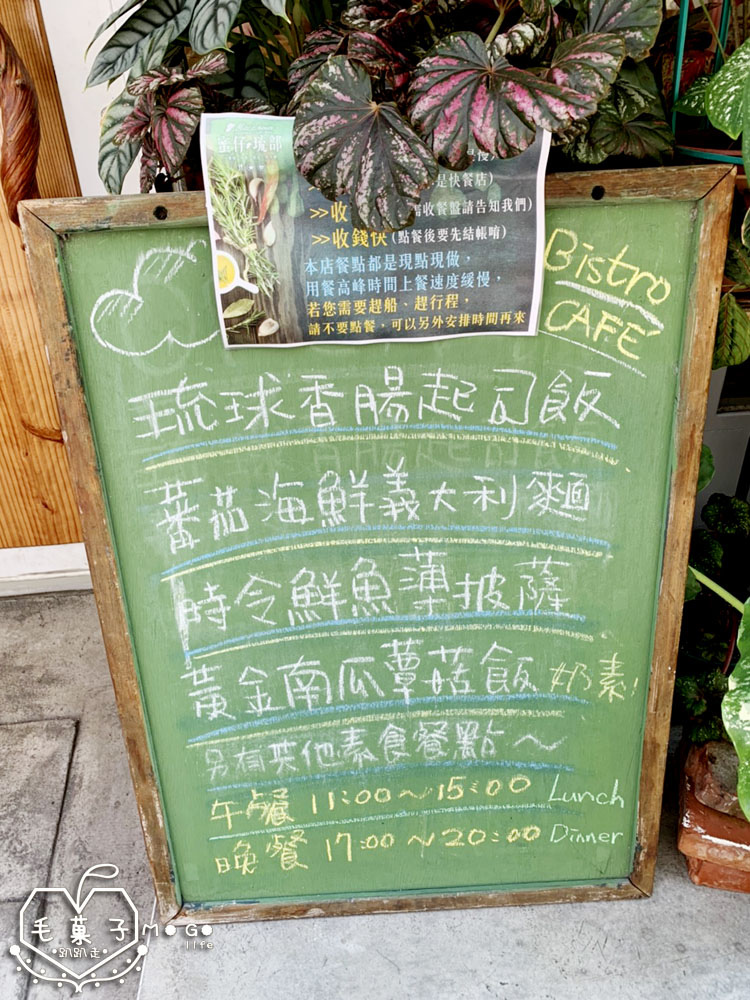 蜜仔琉部
是快餐店)
>>收 收餐盤請告知我們)
>>收錢快(點餐後要先結帳唷)
本店餐點都是現點現做,
用餐高峰時間上餐速度緩慢,
若您需要趕船、趕行程,
請不要點餐,可以另外安排時間再來
Bistro
CAFE
琉球香腸起司飯
蕃茄海鮮義大利麵
時令鮮魚薄披薩
黃金南瓜蕈菇飯 奶素!
另有其他素食餐點~
午餐 11:00~15:00 Lunch
晚餐 17:00~20:00 Dinner
毛菓子 MoGo
趴趴走 life